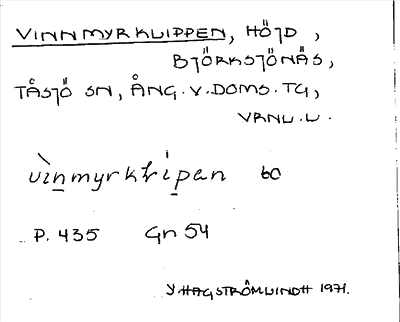 VINNMYRKLIPPEN, HÖJD,
BJÖRKSJÖNÄS,
TÅSJÖ SN, ÅNG.V.DOMS.TG,
VRNL.L.
vìn̲myrkłip̲an 60
P. 435 Gn 54
Y HAGSTRÖMLINDH 1971.